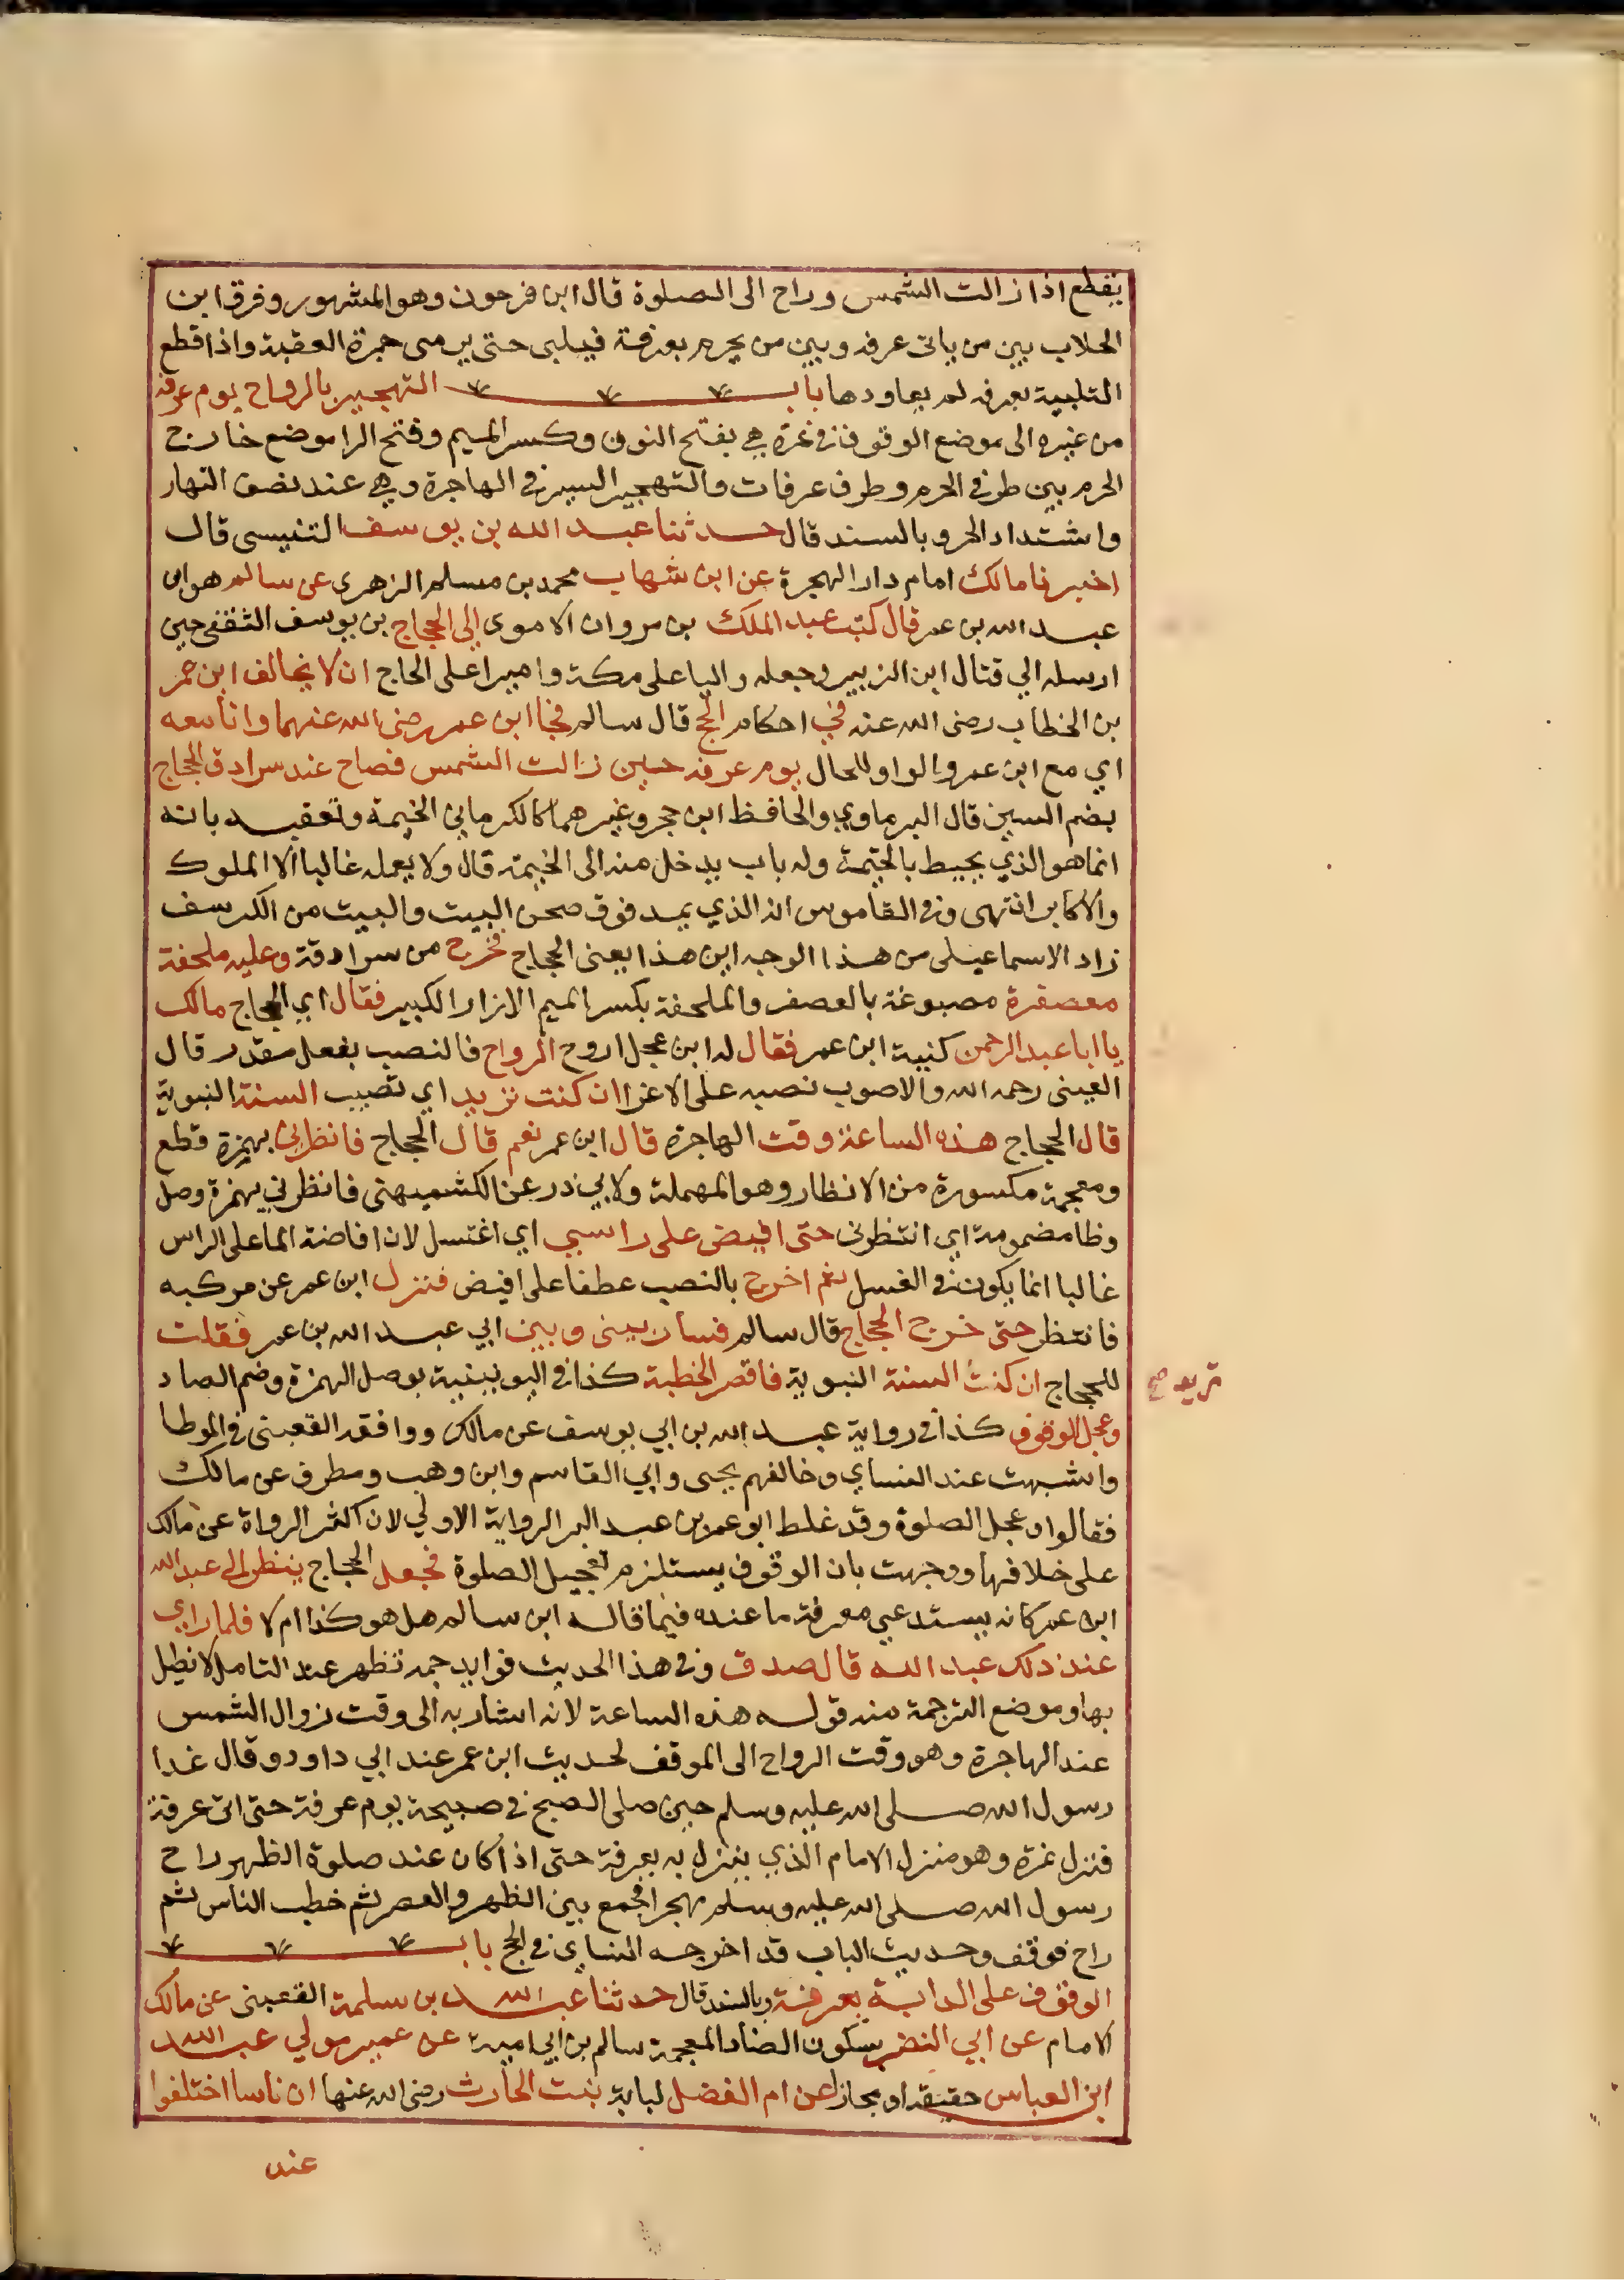 يقطع اذا زالت الشمس وراح الى الصلوة قال ابن فرحون وهو المشهور وفرق ابن
الجلاب بين من ياتى عرفه وبين من يحرم بعرفة فيلبى حتى يرمى جمرة العقبة واذا قطع
التلبية بعرفه لم يعاودها باب التهجير بالرواح يوم عرفه
من غيره الى موضع الوقوف فى نمرة هي بفتح النون وكسر الميم وفتح الرا موضع خارج
الحرم بين طرف الحرم وطرف عرفات والتهجير السير في الهاجرة وهي عند نصف النهار
واشتداد الحر وبالسند قال حدثنا عبد الله بن يوسف التنيسى قال
اخبرنا مالك امام دار الهجرة عن ابن شهاب محمد بن مسلم الزهرى عن سالم هو ابن
عبد الله بن عمر قال كتب عبد الملك بن مروان الاموى الي الحجاج بن يوسف الثقفي حين
ارسله الي قتال ابن الزبير وجعله واليا على مكة واميرا على الحاج ان لا يخالف ابن عمر
بن الخطاب رضى الله عنه في احكام الحج قال سالم فجا ابن عمر رضى الله عنهما وانا معه
اي مع ابن عمر والواو للحال يوم عرفه حين زالت الشمس فصاح عند سرادق الحجاج
بضم السين قال البرماوي والحافظ ابن حجر وغيرهما كالكرماني الخيمة وتعقب بانه
انما هو الذي يحيط بالخيمة وله باب يدخل منه الى الخيمة قال ولا يعمله غالبا الا الملوك
والاكابر انتهى وفي القاموس انه الذي يمد فوق صحن البيت والبيت من الكرسف
زاد الاسماعيلى من هذا الوجه اين هذا يعنى الحجاج فخرج من سرادقة وعليه ملحفة
معصفرة مصبوغة بالعصفر والملحفة بكسر الميم الازار الكبير فقال اي الحجاج مالك
يا ابا عبد الرحمن كنية ابن عمر فقال له ابن عجل اروح الرواح فالنصب بفعل مقدر قال
العينى رحمه الله والاصوب نصبه على الاغرا ان كنت تريد اي تصيب السنة النبوية
قال الحجاج هذه الساعة وقت الهاجرة قال ابن عمر نعم قال الحجاج فانظرني بهمزة قطع
ومعجمة مكسورة من الانظار وهو المهملة ولابي ذر عن الكشميهنى فانظرني بهمزة وصل
وظا مضمومة اي انتظرنى حتى افيض على راسي اي اغتسل لان افاضة الما على الراس
غالبا انما يكون في الغسل ثم اخرج بالنصب عطفا على افيض فنزل ابن عمر عن مركبه
فانتظر حتى خرج الحجاج قال سالم فسار بينى وبين ابي عبد الله بن عمر فقلت
للحجاج ان كنت السنة النبوية فاقصر الخطبة كذا في اليونينية بوصل الهمزة وضم الصاد
تريد صح
وعجل الوقوف كذا في رواية عبد الله بن ابي يوسف عن مالك ووافقه القعبنى في الموطا
واشبهت عند النساي وخالفهم يحيى وابي القاسم وابن وهب ومطرف عن مالك
فقالوا وعجل الصلوة وقد غلط ابو عمر بن عبد البر الرواية الاولي لان اكثر الرواة عن مالك
على خلافها ووجهت بان الوقوف يستلزم تعجيل الصلوة فجعل الحجاج ينظر الى عبد الله
ابن عمر كانه يستدعي معرفة ما عنده فيما قاله ابن سالم هل هو كذا ام لا فلما راي
عند ذلك عبد الله قال صدق وفي هذا الحديث فوايد جمه تظهر عند التامل لا نطيل
بها وموضع الترجمة منه قوله هذه الساعة لانه اشار به الى وقت زوال الشمس
عند الهاجرة وهو وقت الرواح الى الموقف لحديث ابن عمر عند ابي داود وقال غدا
رسول الله صلى الله عليه وسلم حين صلى الصبح في صبيحة يوم عرفة حتى اتى عرفة
فنزل نمرة وهو منزل الامام الذي ينزل به بعرفة حتى اذا كان عند صلوة الظهر راح
رسول الله صلى الله عليه وسلم مهجرا فجمع بين الظهر والعصر ثم خطب الناس ثم
راح فوقف وحديث الباب قد اخرجه النساي في الحج باب
الوقوف على الدابة بعرفة وبالسند قال حدثنا عبد الله بن سلمة القعبنى عن مالك
الامام عن ابي النضر بسكون الضاد المعجمة سالم بن ابي امية عن عمير مولي عبد الله
ابن العباس حقيقة او مجازا عن ام الفضل لبابة بنت الحارث رضى الله عنها ان ناسا اختلفوا
عند